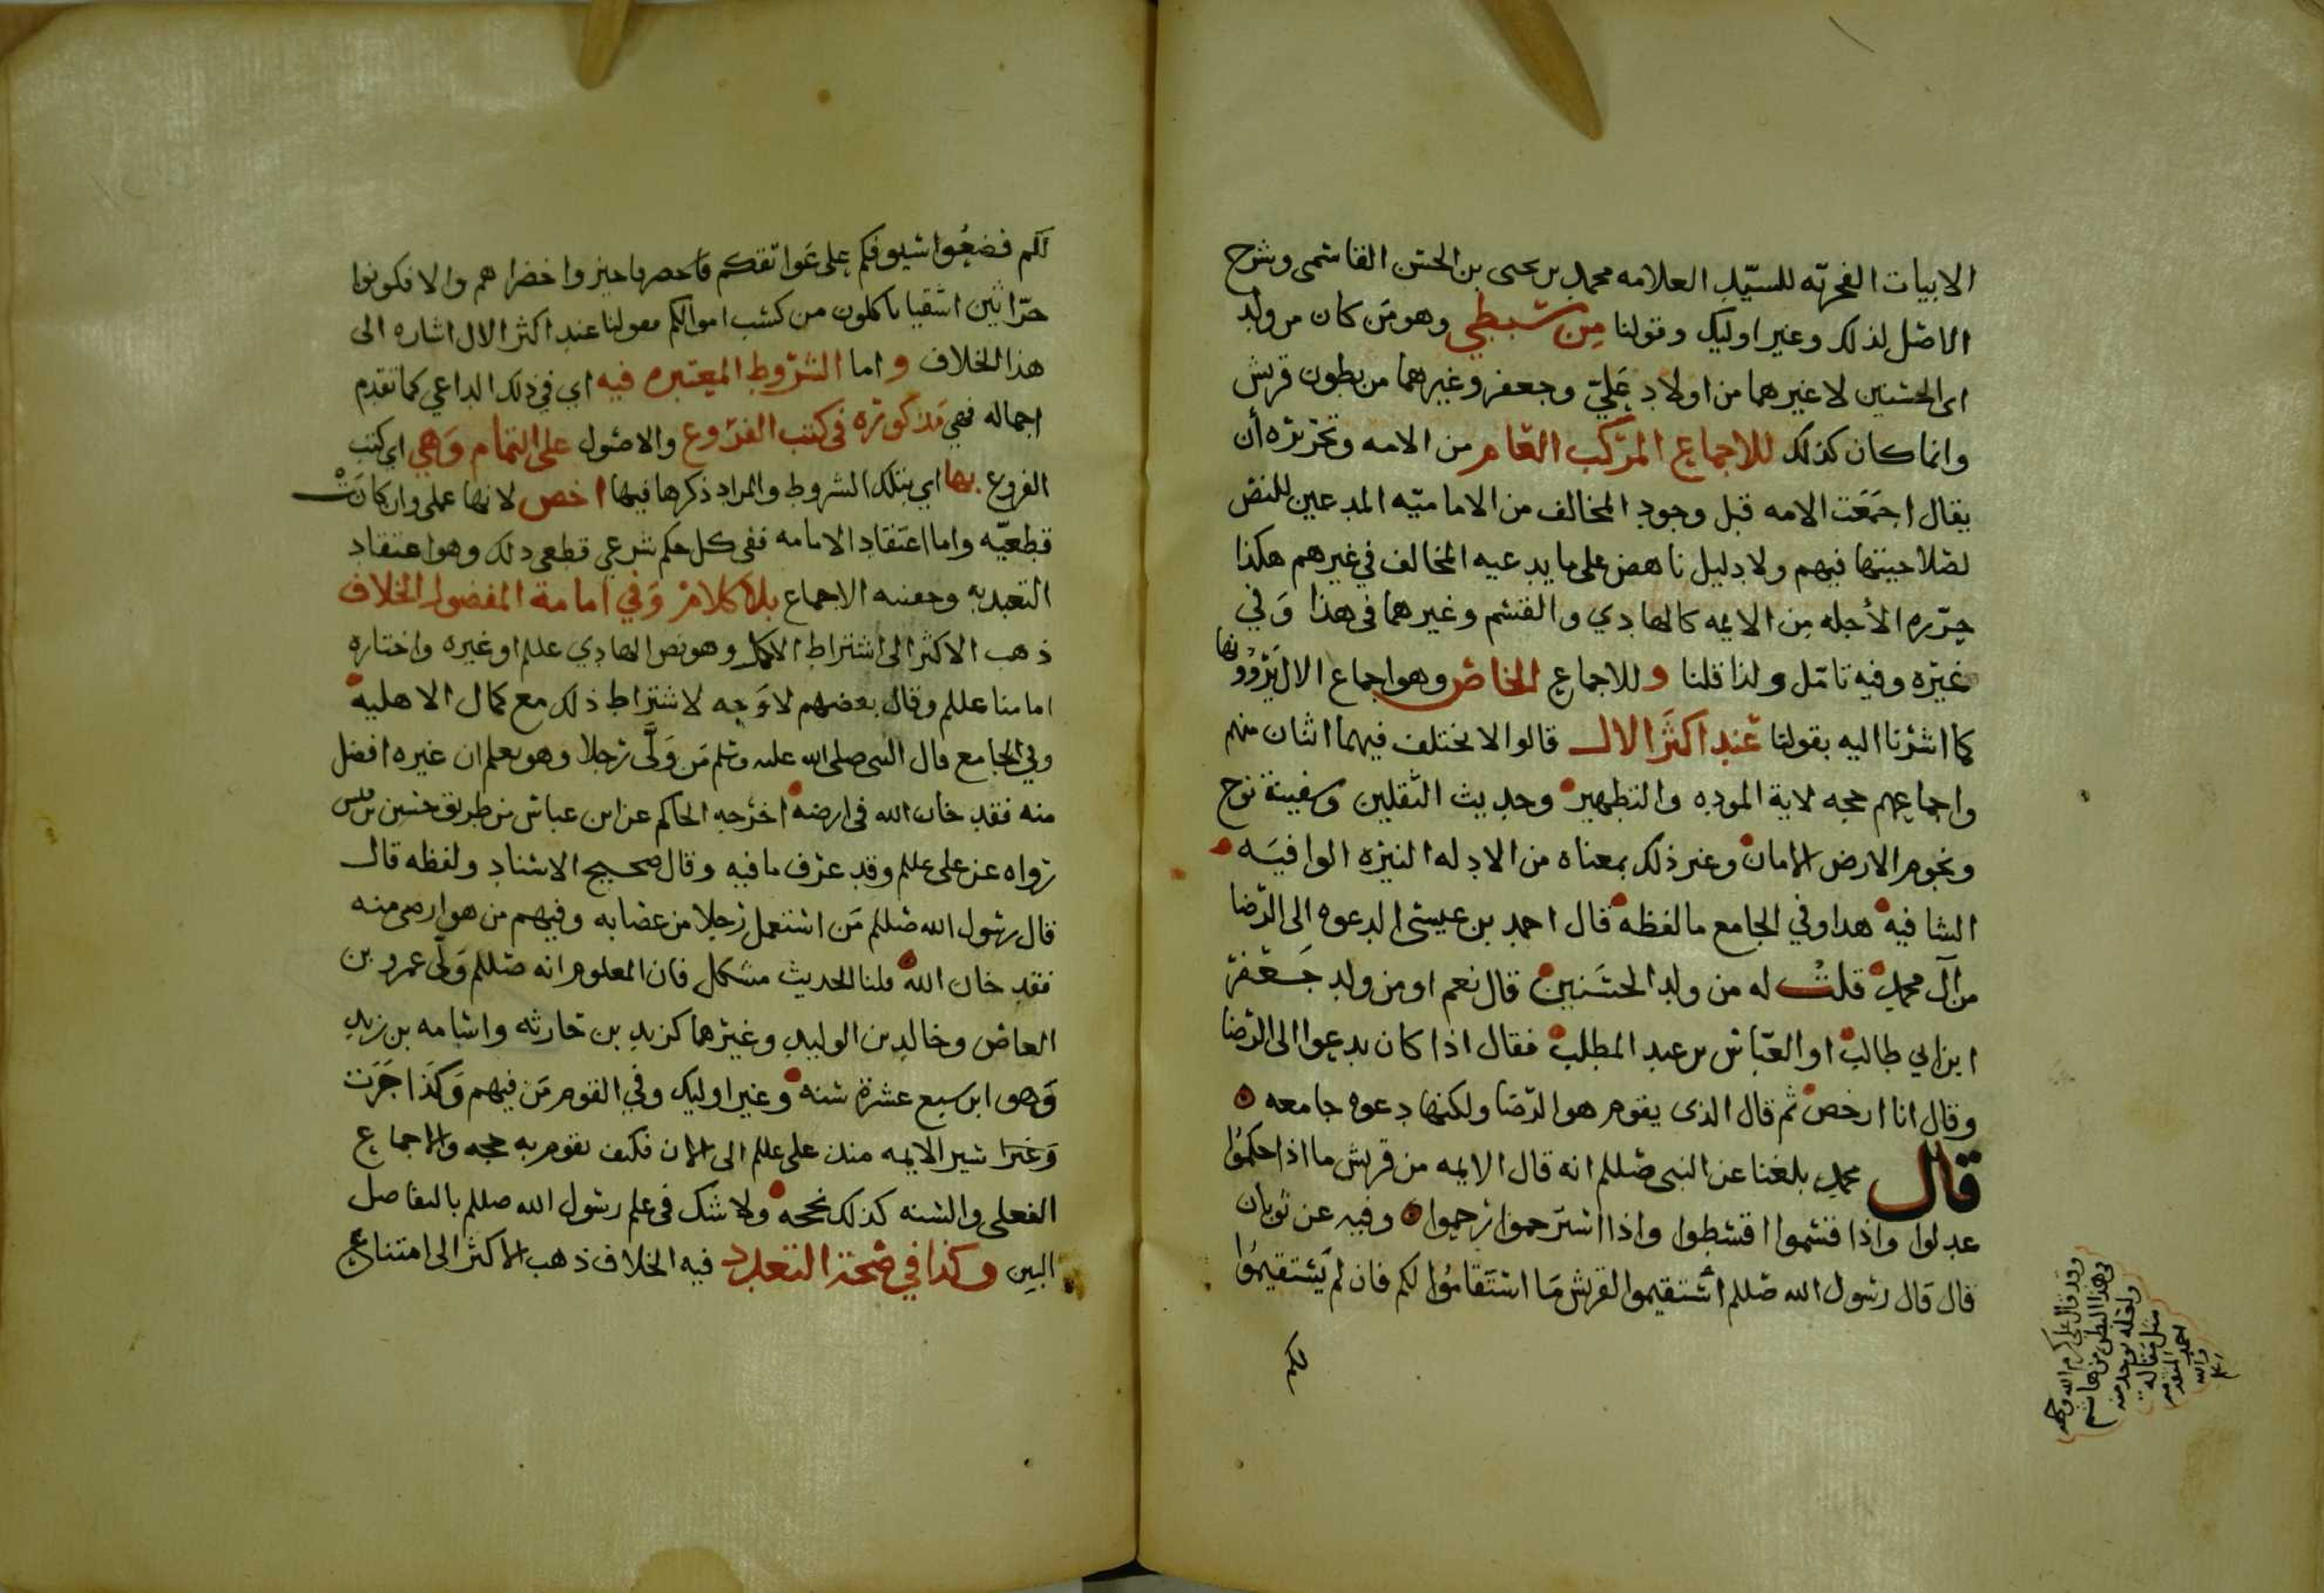 الابيات الفخريه للسيّد العلامه محمد بن يحيى بن الحسن القاسمي وشرح
الاصل لذلك وغير اوليك وقولنا مِن سبطي وهو مَن كان من ولد
اي الحسنين لا غيرهما من اولاد عَليّ وجعفر وغيرهما من بطون قريش
وانما كان كذلك للاجماع المركب العام من الامه وتحريره أن
يقال اجمَعَت الامه قبل وجود المخالف من الاماميّه المدعين للنص
لصلاحيتها فيهم ولا دليل ناهض على ما يدعيه المخالف في غيرهم هكذا
حرّره الأجله مِن الايمه كالهادي والقسم وغيرهما في هذا وَفي
غيَره وفيه تامّل ولذا قلنا وللاجماع الخاص وهو اجماع الال يَروُونها
كما اشرنا اليه بقولنا عَندِ اكثَر الال قالوا لا يختلف فيهما اثنان منهم
واجماعهم حجه لاية الموده والتطهير وحديث الثقلين وسفينة نوح
ونجوم الارض الامان وغير ذلك بمعناه من الادله النيره الوافيَه
الشافيه هدا وفي الجامع ما لفظه قال احمد بن عيسى الدعوه الى الرّضا
من آل محمد قلت له من ولد الحسَنين قال نعم او من ولد جَعفر
ابن ابي طالب او العبّاس بن عبد المطلب فقال اذا كان يدعوا الى الرضا
وقال انا ارخص ثم قال الذى يقوم هو الرّضا ولكنها دعوه جامعه
قال محمد بلغنا عن النبي صللم انه قال الايمه من قريش ما اذا حكمُوا
عدلوا واذا قسموا اقسطوا واذا استرحموا رحموا وفيه عن ثوبان
قال قال رسول الله صللم استقيموا لقريش مَا استَقامُوا لكم فان لم يَستقيمُوا
لكم
وقد قال علي كرم الله وجهه
في هذا البطن من هاشم
احمد
والله
لكم فضعُوا سيوفكم على عَواتقكم فا حصرهم واخضراهم والا فكونوا
حرّاثين اشقيا ياكلون من كسب اموالكم فقولنا عند اكثر الال اشاره الى
هذا الخلاف واما الشرُوط المعتبره فيه اي في ذلك الداعي كما تقدم
اجماله فهي مَذكوره في كتب الفرُوع والاصول على التمام وَهي اي كتب
الفروع بها اي بتلك الشروط والمراد ذكرها فيها اخص لانها عملى وان كانَتْ
قطعيّه واما اعتقاد الامامه ففى كل حكم شرعي قطعى ذلك وهو اعتقاد
التعبد به وحقيه الاجماع بلا كلامٍ وَفي امامة المفضول الخلاف
ذهب الاكثر الى اشتراط الاكمل وهو نص الهادي عللم او غيره واختاره
امامنا عللم وقال بعضهم لا وَجه لاشتراط ذلك مع كمال الاهليه
وفي الجامع قال النبي صلى الله عليه وسلم مَن وَلَّى رَجلا وهو يعلم ان غيره افضل
منه فقد خان الله في ارضه اخرَجه الحاكم عن ابن عباس من طريق حسين بن قيس
رواه عن على عللم وقد عرّف ما فيه وقال صحيح الاسناد ولفظه قال
قال رسول الله صللم مَن استعمل رَجلا من عصابه وفيهم من هو ارضى منه
فقد خان الله قلنا الحديث مشكل فان المعلوم انه صللم وَلَّى عمرو بن
العاص وخالد بن الوليد وغيرهما كزيد بن حارثه واسامه بن زيد
وَهو ابن سبع عشرة سنه وغير اوليك وفي القوم مَن فيهم وَكَذا جَرَت
سير الايمه منذ على عللم الى الان فكيف تقوم به حجه والاجماع
الفعلى والسنه كذلك حجه ولا شك في علم رسول الله صللم بالتفاضل
البين وكذا في صحَة التعدد فيه الخلاف ذهب الاكثر الى امتناع